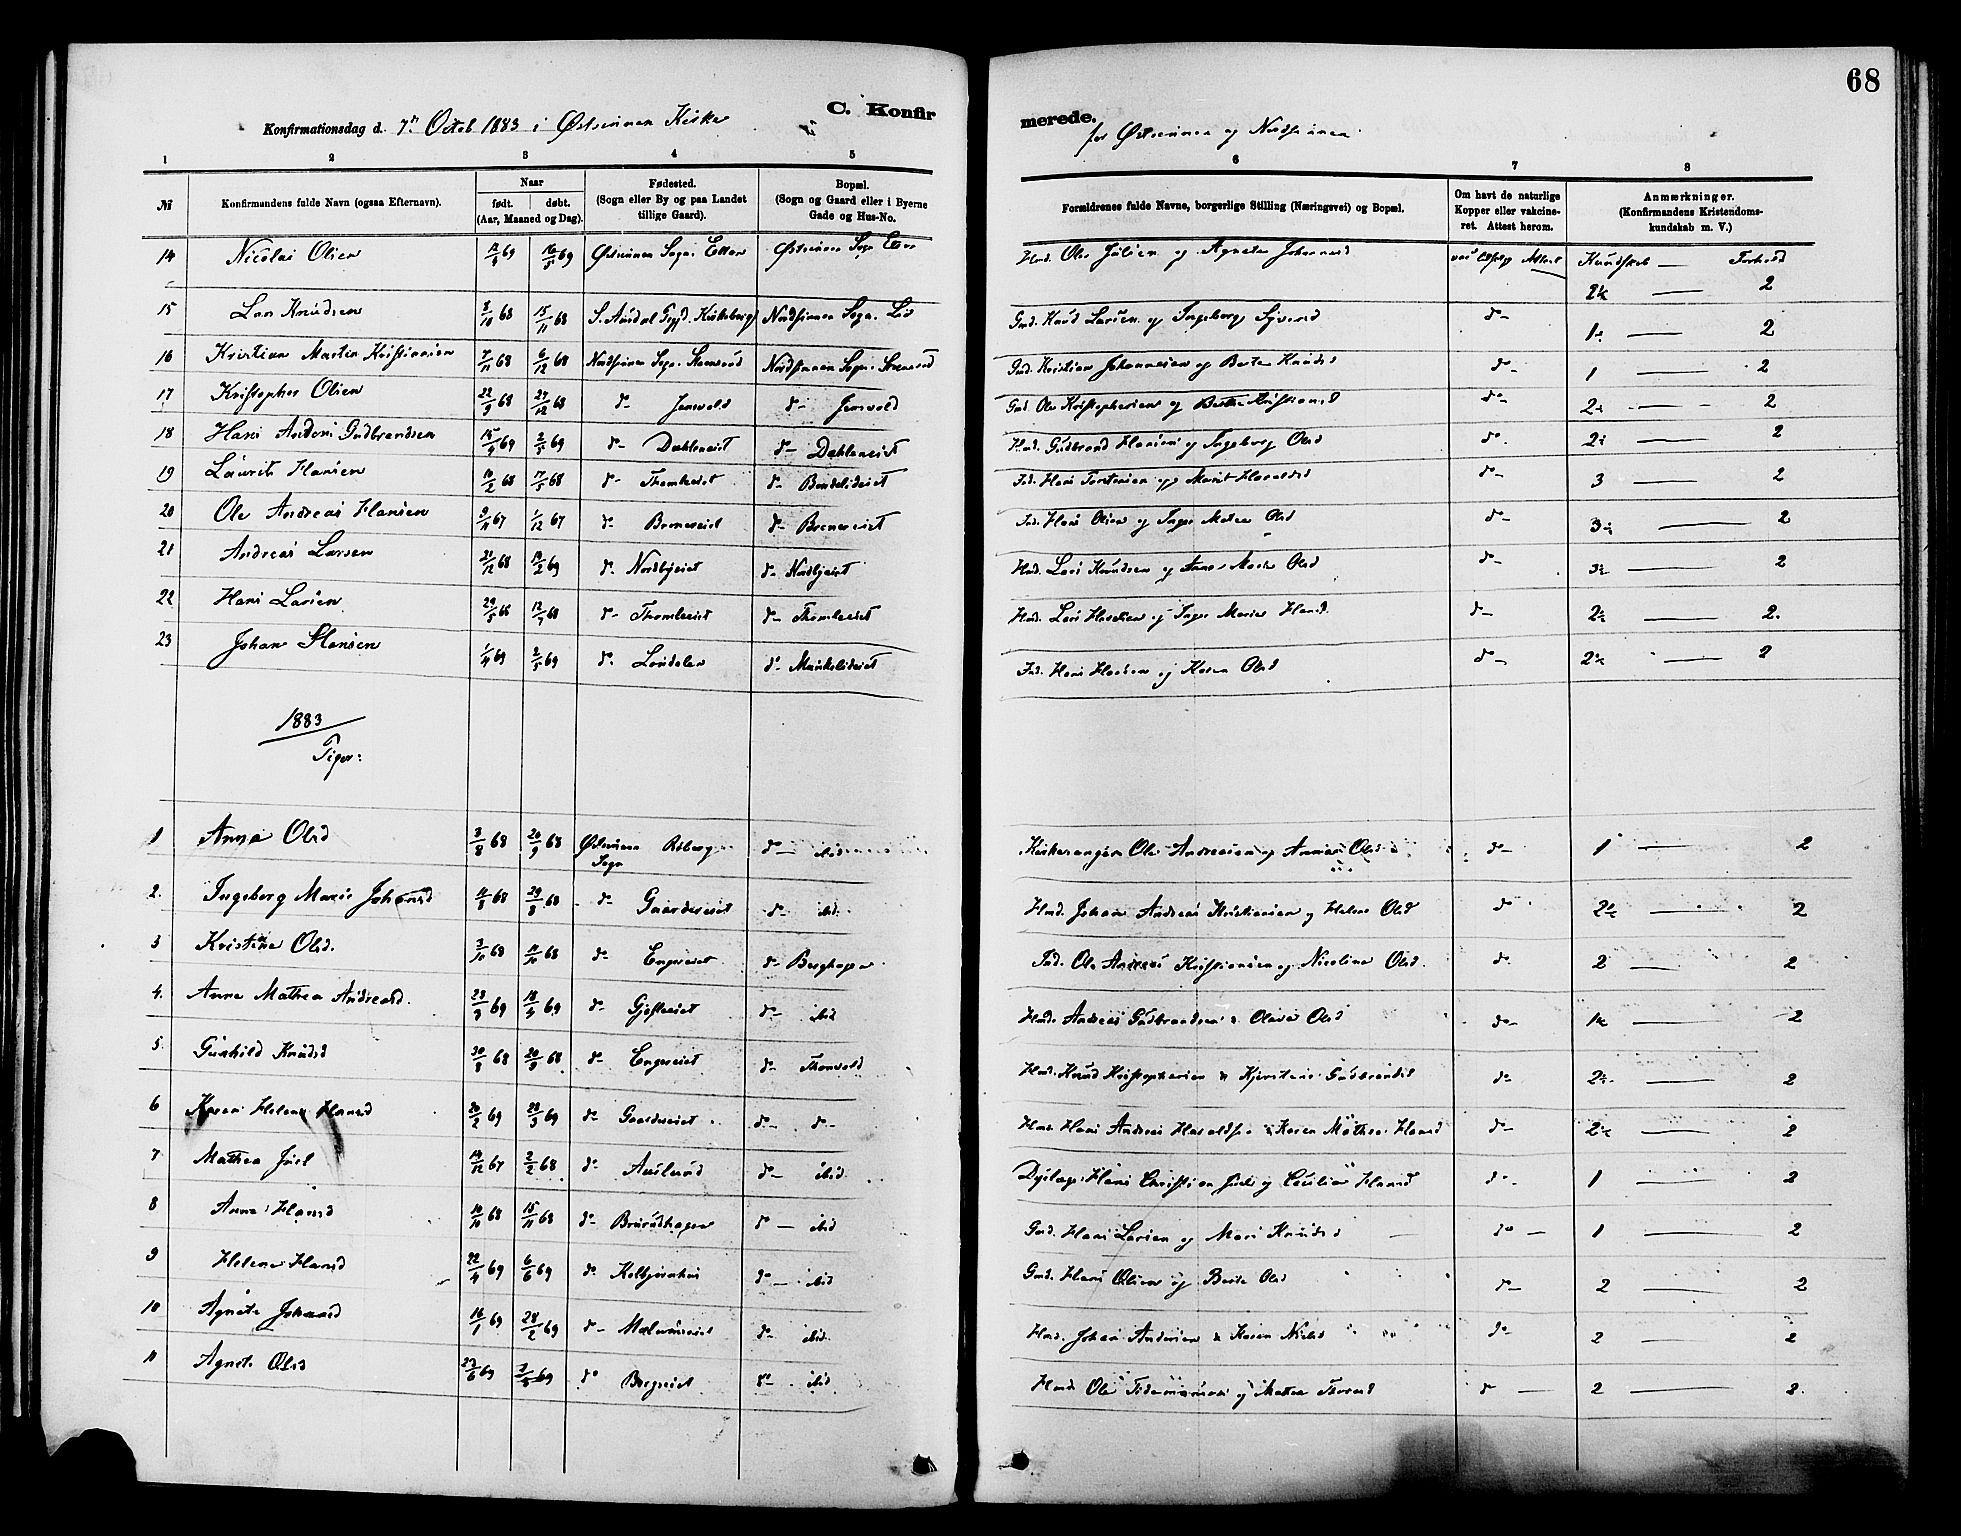 68
C. Konfirmerede.
Konfirmationsdag d. 7de Octob 1883 i Østsinnen Kirke for Østsinnen og Nordsinnen.
1 2 3 4 5 6 7 8
№ Konfirmandens fulde Navn (ogsaa Efternavn). Naar født. døbt. (Aar, Maaned og Dag). Fødested. (Sogn eller By og paa Landet tillige Gaard). Bopæl. (Sogn og Gaard eller i Byerne Gade og Hus-No. Forældrenes fulde Navne, borgerlige Stilling (Næringsvei) og Bopæl. Om havt de naturlige Kopper eller vakcineret. Attest herom. Anmærkninger. (Konfirmandens Kristendomskundskab m. V.)
14 Nicolai Olsen 69 16/5 69 Østsinnen Sogn Østsinnen Sogn Hmd. Ole Julsen og Agnete Johannesd Attest Kundskab — Forhold 2
15 Lars Knudsen 3/10 68 15/11 68 Nordsinnen Sogn. Gmd. Knud Larsen og Ingeborg Syversd do 1 — 2
16 Kristian Martin Kristiansen 7/11 68 6/12 68 Nordsinnen Sogn. Nordsinnen Sogn. Gmd. Kristian Johannesen og Berte Knudsd do 1 — 2
17 Kristopher Olsen 22/9 68 27/12 68 do Jensvold do Jensvold Gmd Ole Kristophersen og Berthe Kristiansd do 2 — 2
18 Hans Anders Gudbrandsen 15/4 69 2/5 69 do Dæhlseiet do Dæhlseiet Hmd. Gudbrand Hansen og Ingeborg Olsd do 2 — 2
19 Laurits Hansen 10/2 68 17/5 68 do Thomleeiet do Ind. Hans Torstensen og Marit Haraldsd do 3 — 2
20 Ole Andreas Hansen 9/11 67 1/12 67 do do Ind. Hans Olsen og Inger Mathea Olsd do 3 — 2
21 Andreas Larsen 21/12 68 14/2 69 do Nordbyeiet do Nordbyeiet Hmd. Lars Knudsen og Anne Marie Olsd do 3 — 2
22 Hans Larsen 29/5 68 12/7 68 do Thomleeiet do Thomleeiet Hmd. Lars og Inger Marie Hansd do 2 — 2
23 Johan Hansen 1/4 69 2/5 69 do do Ind. Hans Hansen og Karen Olsd do 2 — 2
1883
Piger:
1 Anna Olsd 3/8 68 20/9 68 Østsinnen Sogn do — ibid Kirkesanger Ole Andreasen og Anne Olsd do 1 — 2
2. Ingeborg Marie Johansd 11/8 68 29/8 68 do Gaardereiet do ibid Hmd. Johan Andreas Kristiansen og Helene Olsd do 2 — 2
3 Kristine Olsd. 3/10 68 11/10 68 do Engeseiet do Berghagen Ind. Ole Andreas Kristiansen og Nicoline Olsd. do 2 — 2
4. Anne Mathea Andreasd. 23/3 69 18/4 69 do do ibid Hmd. Andreas Gudbrandsen & Olava Olsd do 1 — 2
5. Gunhild Knudsd 30/8 68 20/9 68 do Engeseiet do Hmd. Knud Kristophersen & Kjerstine Gudbrandsd do 2 — 2
6 Karen Helene Hansd 20/2 69 28/3 69 do Gaardereiet do do Hmd. Hans Andreas Haraldsen & Karen Mathea Hansd do 2 — 2
7 Mathea Juel 14/12 67 2/2 68 do do ibid Hans Christian Juel og Cecilie Hansd do 1 — 2
8 Anne Hansd 10/10 68 15/11 68 do Brurudhagen do — ibid Gmd. Hans Larsen og Mari Knudsd do — 1 — 2
9 Helene Hansd 22/4 69 6/6 69 do Kolbjørnhus do — ibid Gmd. Hans Olsen og Berte Olsd do 2 — 2
10 Agnete Johansd 16/1 69 28/2 69 do do ibid Hmd. Johan Andersen & Karen Nielsd do 2 — 2
11 Agnete Olsd 27/6 69 69 do Bergseiet do ibid Hmd. Ole Tidemansen og Mathea do — 2 — 2.